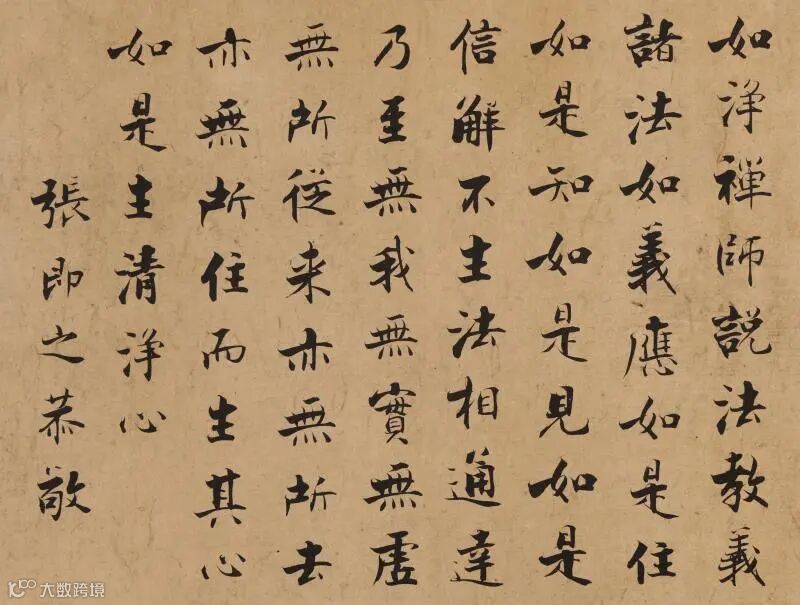 如浄禅師説法教義
諸法如義應如是住
如是知如是見如是
信解不生法相通達
乃至無我無實無虛
無所從来亦無所去
亦無所住而生其心
如是生清浄心
張即之恭敬
100 大数跨境